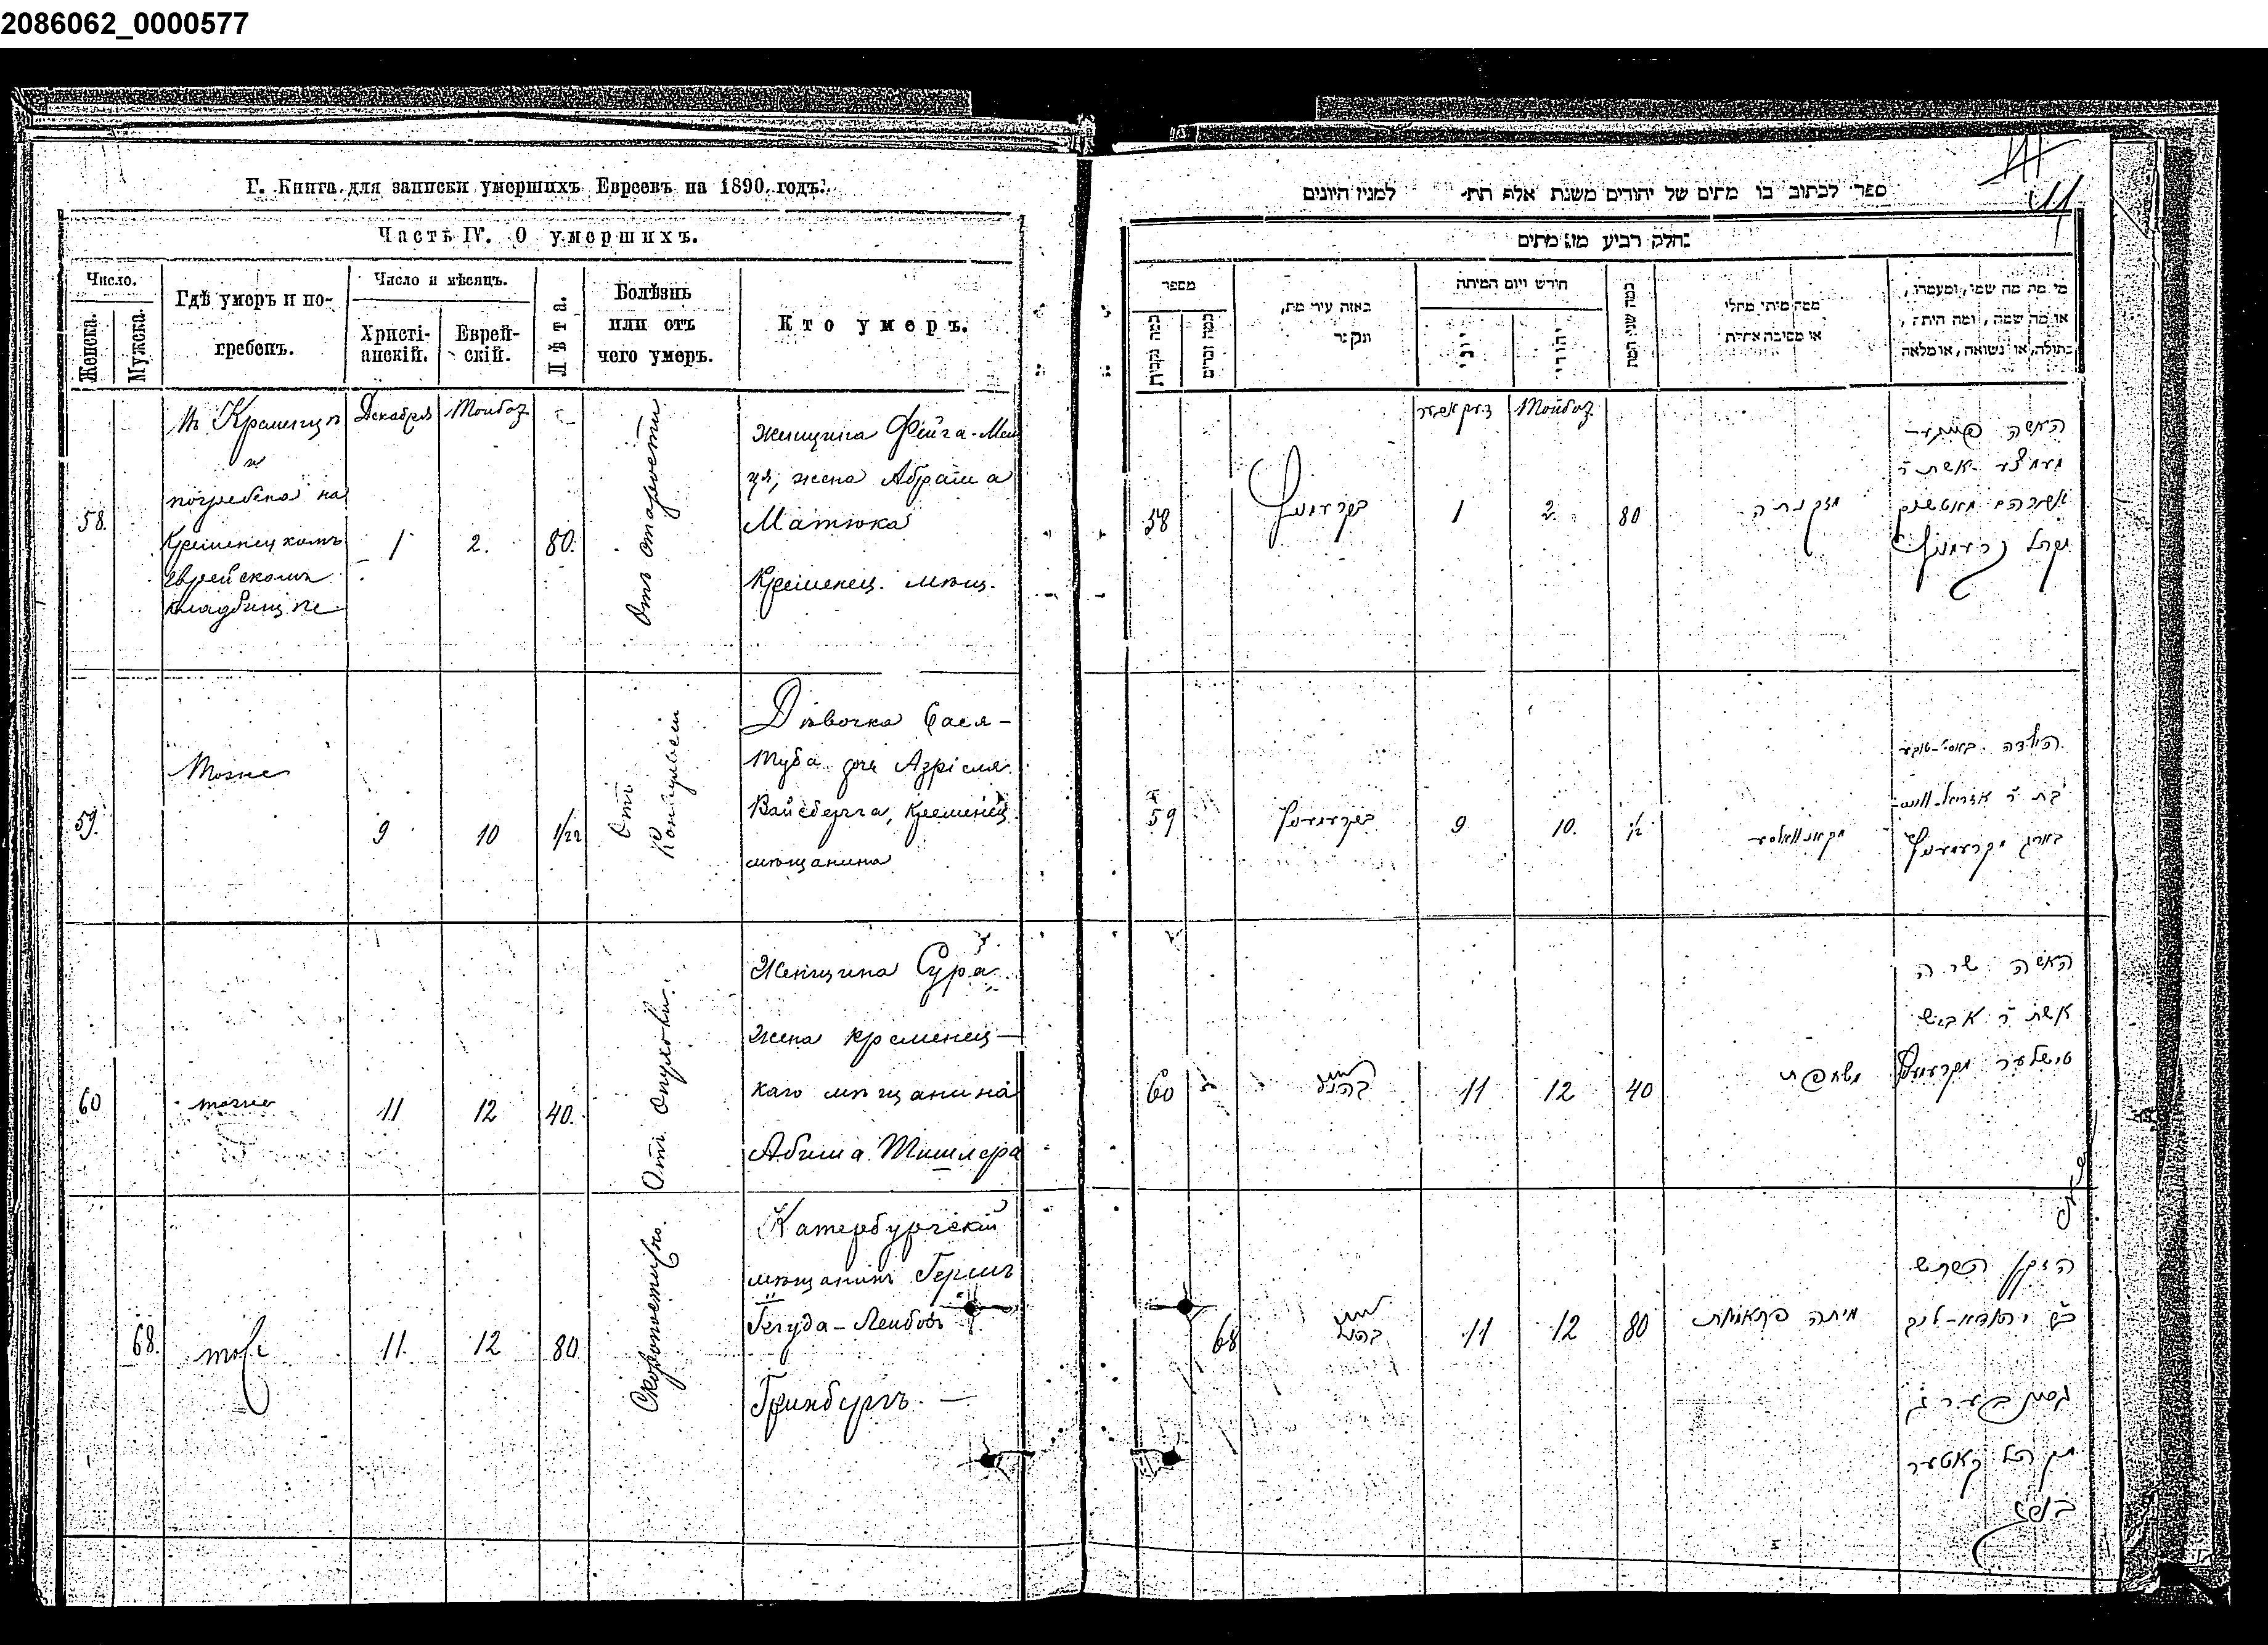 2086062_0000577
Г. Книга для записки умершихъ Евреевъ на 1890 годъ.
Часть IV. О умершихъ.
Число.
Женска.
Мужска.
Гдѣ умеръ и по-
гребенъ.
Число и мѣсяцъ.
Христі-
анскій.
Еврей-
скій.
Лѣта.
Болѣзнь
или отъ
чего умеръ.
Кто умеръ.
58.
Въ Кременцѣ
и
погребена на
Кременецкомъ
еврейскомъ
кладбищѣ
Декабря
1
2.
80.
Отъ старости
женщина Фейга-Мен
ця, жена Абрама
Матюка
Кременец. мѣщ.
59.
Тоже
9
10
1/2
Отъ
Конвульсіи
Дѣвочка Бася-
Туба дочь Азріеля
Вайсберга, Кременец.
мѣщанина
60
тоже
11
12
40.
Отъ опухоли.
Женщина Сура
жена кременец-
каго мѣщанина
Абиша Тишлера
68.
тоже
11.
12
80
Скоропостижно.
Катербургскій
мѣщанинъ Гершъ
Іегуда-Лейбовъ
Гринбургъ. —
ספר לכתוב בו מתים של יהודים משנת אלף תת למנין היונים
חלק רביע מן מתים
מספר
כמה נקבות
כמה זכרים
באזה עיר מת,
ונקבר
חודש ויום המיתה
יוני
יהודי
כמה שני המת
ממה מיתי מחלי
או מסיבה אחרת
מי מת מה שמו, ומעמדו,
או מה שמה, ומה היתה,
בתולה, או נשואה, או מלאה
58
בקרעמניץ
1
2.
80
מזקנתה
האשה פייגע-
מענצע אשת ר
אברהם מאטיוק
מקהל קרעמניץ
59
בקרעמניץ
9
10.
1/2
הילדה באסי-טובע
בת ר אזריאל ווייס-
בארג מקרעמניץ
60
בהנ״ל
11
12
40
משחפת
האשה שרה
אשת ר אביש
טישלער מקרעמניץ
68
בהנ״ל
11
12
80
מיתה פתאומית
הזקן הערש
יהודא-ליב
גרינבערג
מקהל קאטער
בורג